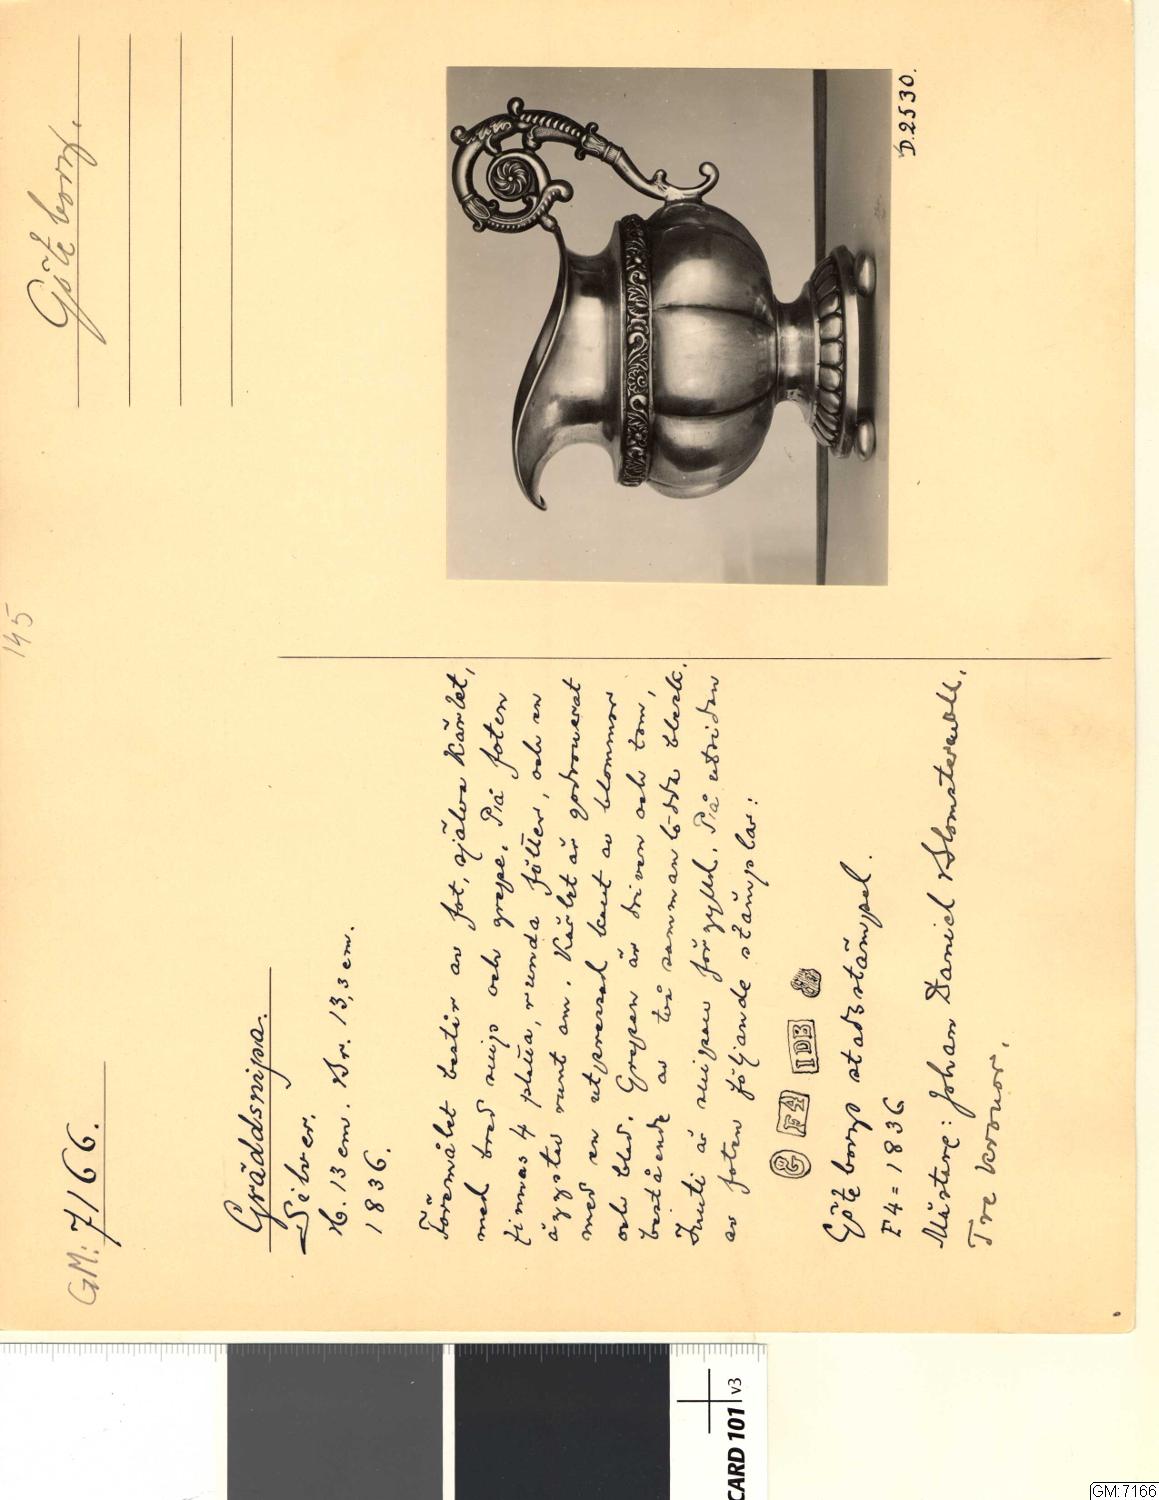 GM: 7166.
145
Göteborg.
Gräddsnipa.
Silver.
H. 13 cm. Br. 13,3 cm.
1836.
Föremålet består av fot, själva kärlet,
med bred snip och grepe. På foten
finnas 4 platta, runda fötter, och en
äggstav runt om. Kärlet är godronerat
med en utpressad kant av blommor
och blad. Grepen är driven och tom,
bestående av två sammanlödda bleck.
Inuti är snipan förgylld. På utsidan
av foten följande stämplar:
G F4 IDB
Göteborgs stadsstämpel.
F4 = 1836
Mästare: Johan Daniel Blomsterwall.
Tre kronor.
D.2530.
CARD 101 v3
GM:7166